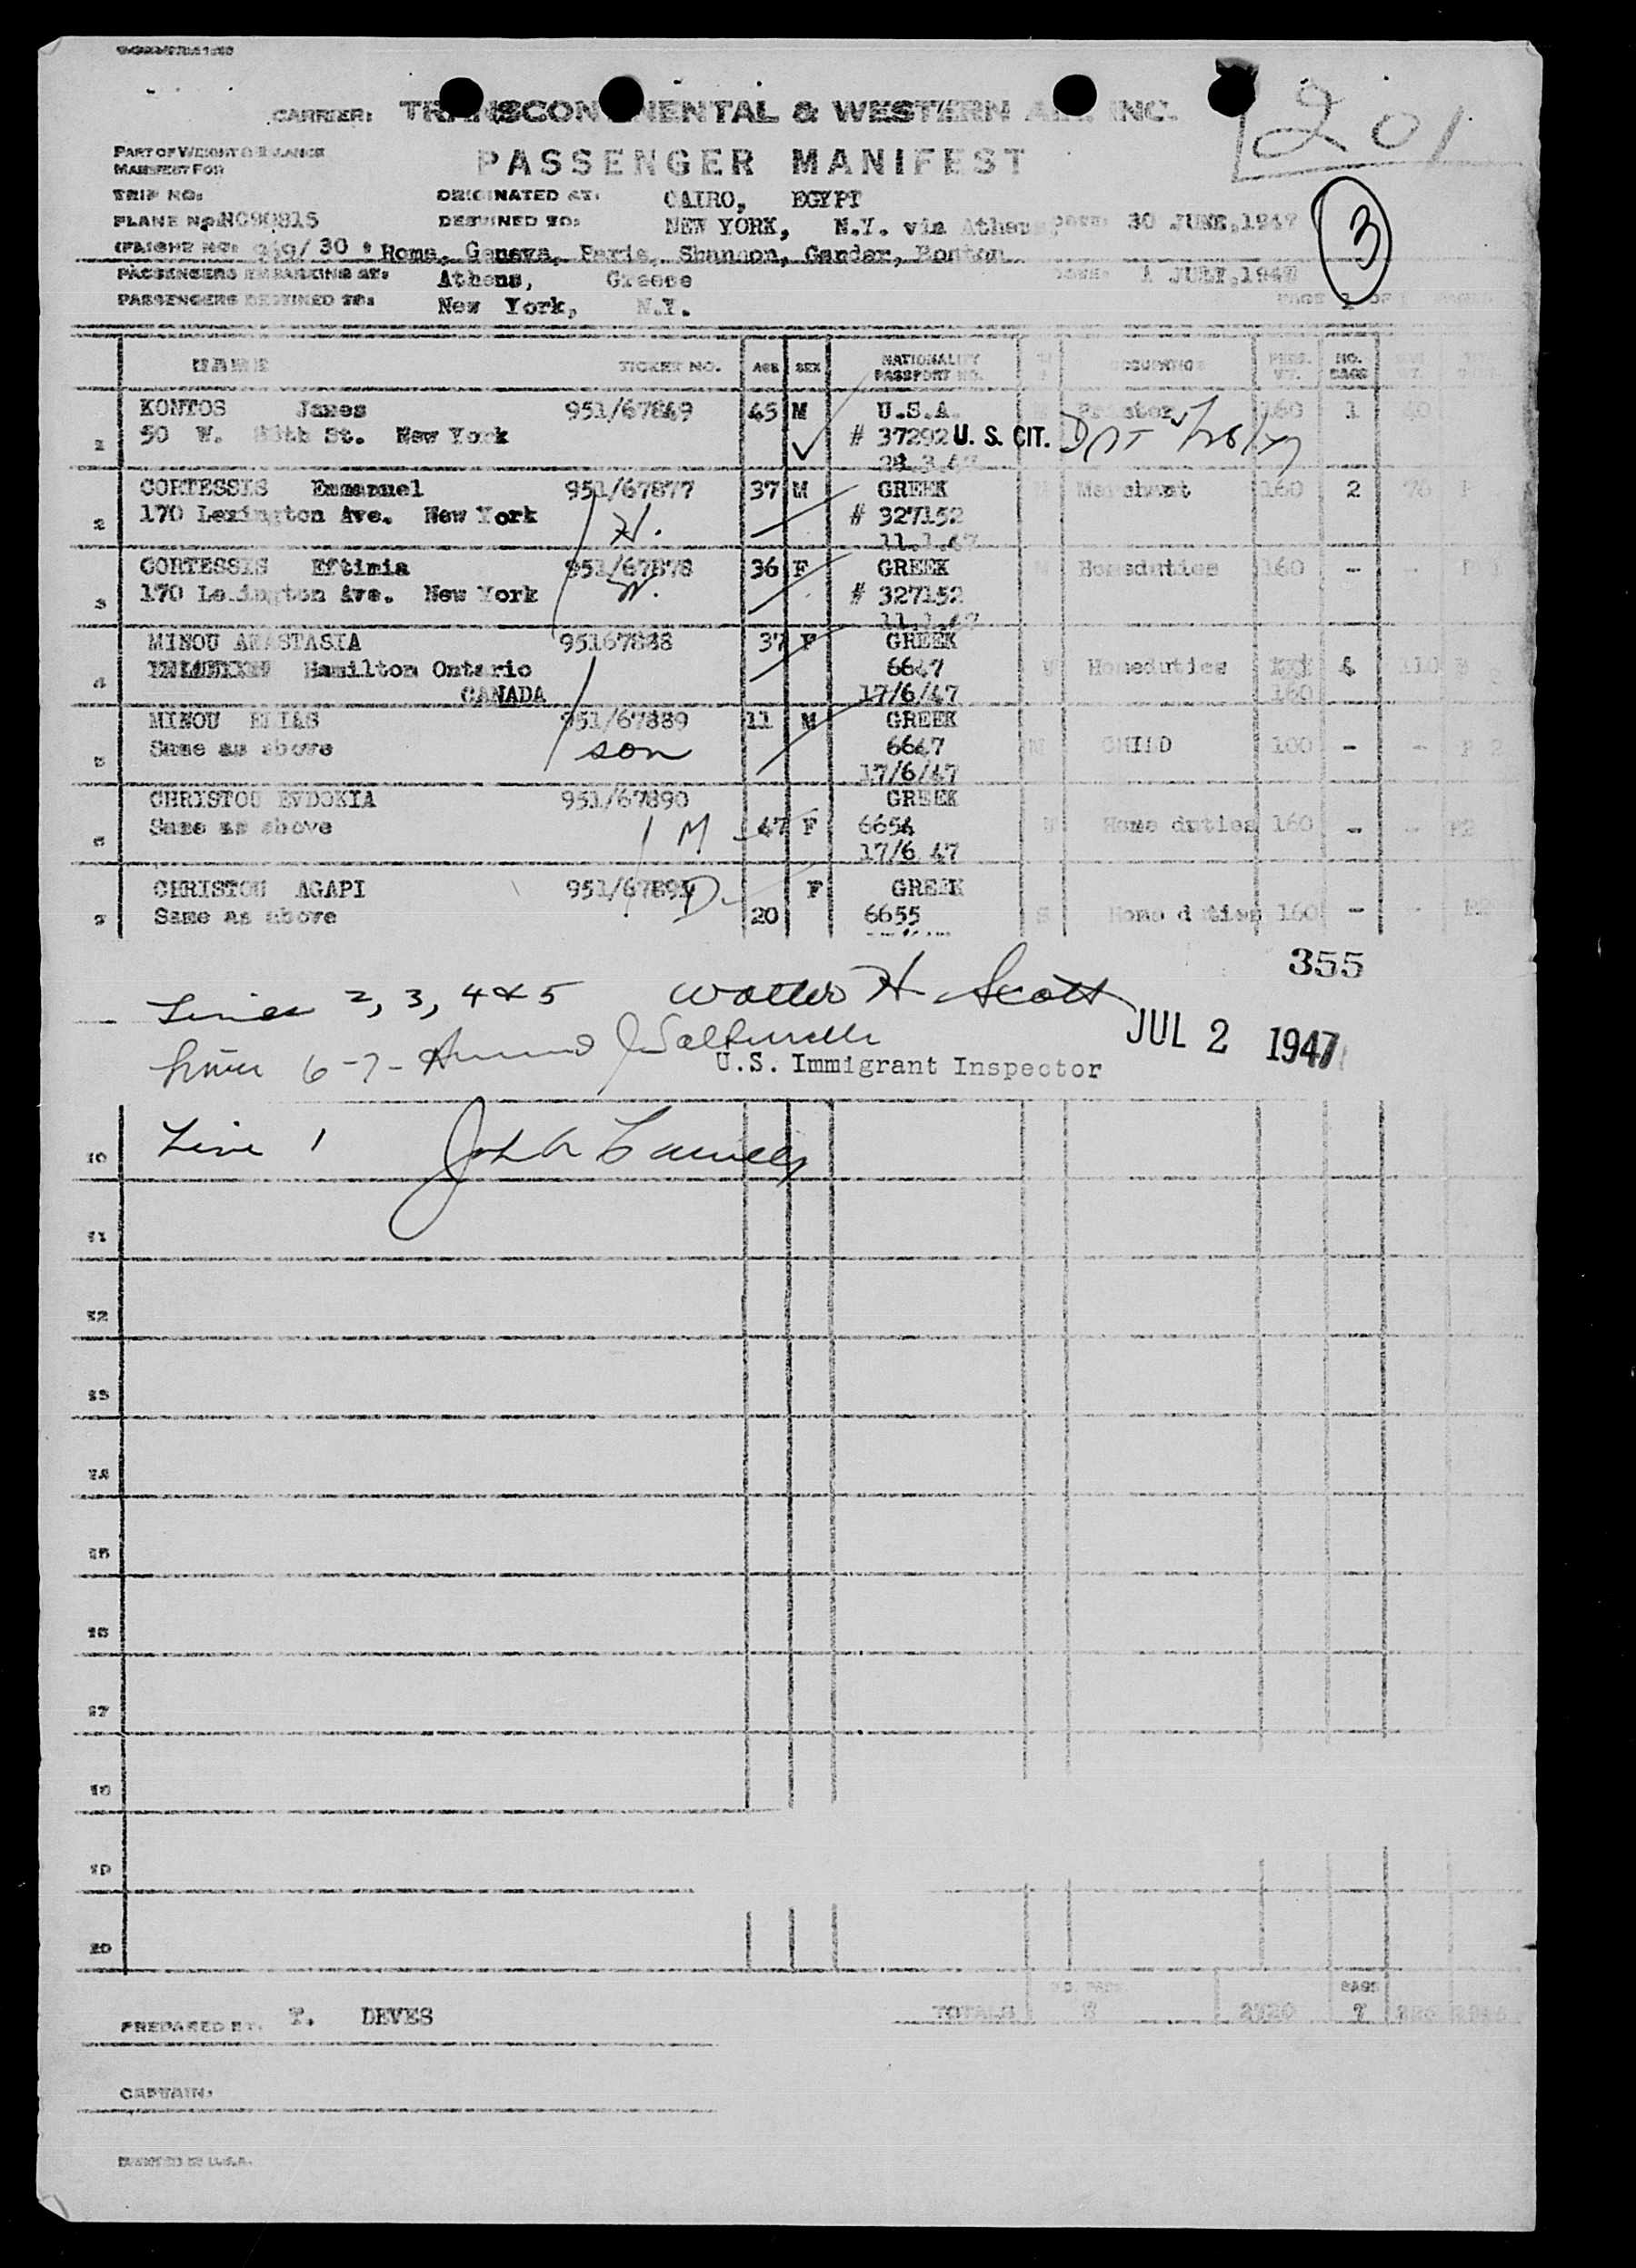 CARRIER: TRANSCONTINENTAL & WESTERN AIR INC.
201
PART OF WEIGHT & BALANCE
MANIFEST FOR
PASSENGER MANIFEST
TRIP NO: ORIGINATED AT: CAIRO, EGYPT
PLANE No. NC90815 DESTINED TO: NEW YORK, N.Y. via Athens DATE: 30 JUNE, 1947
3
/30 Rome, Geneva, Paris, Shannon, Gander, Boston
PASSENGERS EMBARKING AT: Athens, Greece 1 JULY, 1947
PASSENGERS DESTINED TO: New York, N.Y. PAGE 1 OF
NAME TICKET NO. AGE SEX NATIONALITY PASSPORT NO. OCCUPATION PASS. WT. NO. BAGS
1 KONTOS James 951/67849 45 M U.S.A. 160 1 40
50 W. St. New York # 37292 U. S. CIT.
2 CORTESSIS Emmanuel 951/67877 37 M GREEK M Merchant 160 2 70
170 Lexington Ave. New York H. # 327152
11.1.47
3 CORTESSIS Eftimia 951/67878 36 F GREEK M Homeduties 160 - -
170 Lexington Ave. New York W. # 327152
11.1.47
4 MINOU ANASTASIA 95167888 37 F GREEK
Hamilton Ontario 6647 Homeduties 4 110
CANADA 17/6/47 160
5 MINOU ELIAS 951/67889 11 M GREEK
Same as above son 6647 CHILD 100 - - F 2
17/6/47
6 CHRISTOU EVDOKIA 951/67890 GREEK
Same as above M 47 F 6654 Home duties 160 - - F2
17/6 47
7 CHRISTOU AGAPI D F GREEK
Same as above 20 6655 S Home duties 160 - - F2
355
Lines 2, 3, 4 & 5 Walter H. Scott
JUL 2 1947
Lines 6-7-
U.S. Immigrant Inspector
10 Line 1
11
12
13
14
15
16
17
18
19
20
TOTALS 7 BAGS 7
PREPARED BY: T. DEVES
CAPTAIN:
PRINTED IN U.S.A.